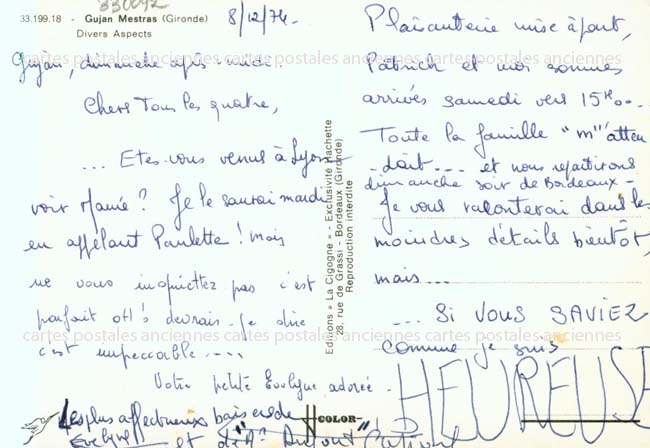 330092
33.199.18 - Gujan Mestras (Gironde)
Divers Aspects
8/12/74.
Gujan, dimanche après-midi.
Chers Tous les quatre,
... Etes-vous venus à Lyon
voir Mamé? Je le saurai mardi
en appelant Paulette! mais
ne vous inquiettez pas c'est
parfait devrais-je dire
c'est impeccable....
Votre petite Evelyne adorée.
Les plus affectueux baisers de
Evelyne et de
Editions « La Cigogne » - Exclusivité Hachette
28, rue de Grassi - Bordeaux (Gironde)
Reproduction interdite
COLOR
Plaisanterie mise à part,
Patrick et moi sommes
arrivés samedi vers 15H00.
Toute la famille "m'atten
-dait.... et nous repartirons
dimanche soir de Bordeaux-
Je vous raconterai dans les
moindres détails bientôt,
mais...
... SI VOUS SAVIEZ
comme je suis
HEUREUSE
cartes postales anciennes cartes postales anciennes
cartes postales anciennes cartes postales anciennes